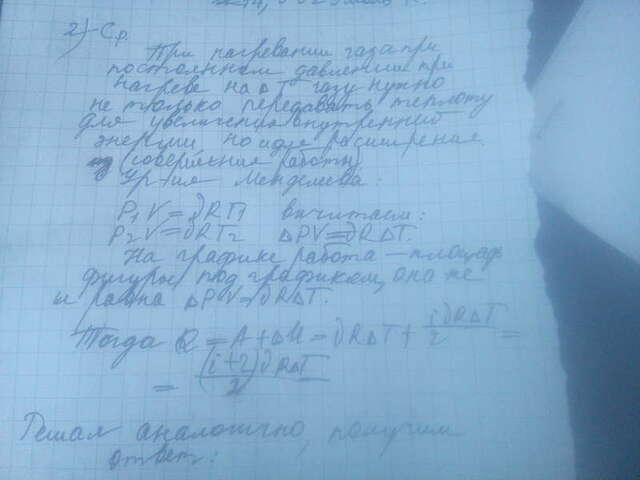 2) C_p.
При нагревании газа при
постоянном давлении при
нагреве на ΔT газу нужно
не только передавать теплоту
для увеличения внутренней
энергии но и для расширения
(совершения работы)
Ур-ния Менделеева:
P₁V=∂RT₁ вычитаем:
P₂V=∂RT₂ ΔPV=∂RΔT.
На графике работа – площадь
фигуры под графиком, она же
и равна ΔPV=∂RΔT.
Тогда Q = A+ΔU = ∂RΔT + i∂RΔT/2 =
= (i+2)∂RΔT/2
Решая аналогично, получим
ответ: